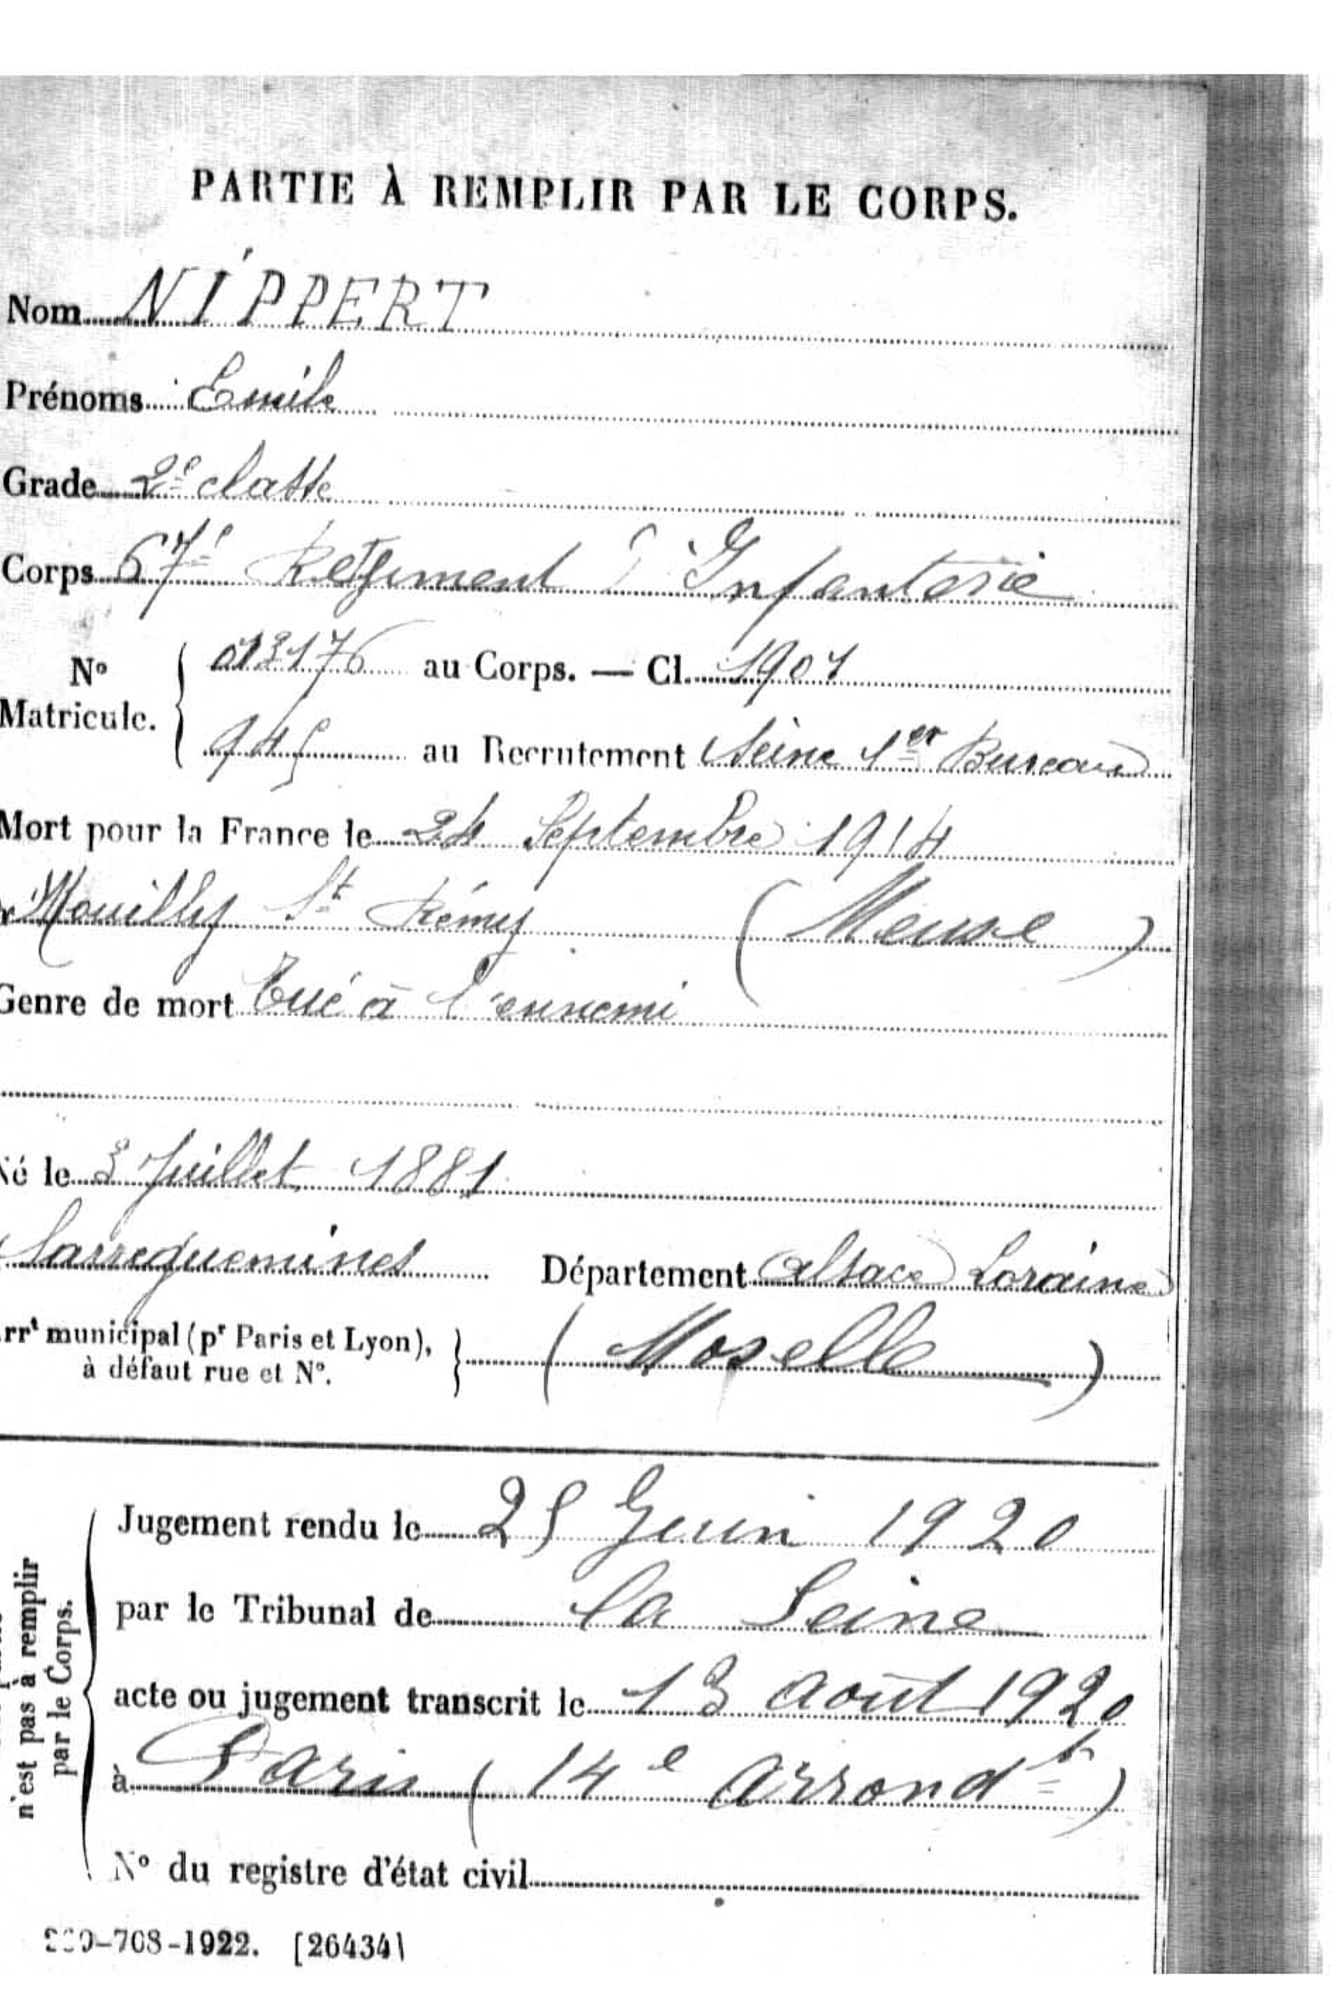 PARTIE À REMPLIR PAR LE CORPS.
Nom NIPPERT
Prénoms Emile
Grade 2e classe
Corps 67e Régiment d'Infanterie
No Matricule. 013176 au Corps. — Cl. 1901
945 au Recrutement Seine 1er Bureau
Mort pour la France le 24 Septembre 1914
Mouilly St Rémy (Meuse)
Genre de mort Tué à l'ennemi
Né le 3 Juillet 1881
Sarreguemines Département Alsace Loraine
arrt municipal (pr Paris et Lyon), à défaut rue et No. (Moselle)
n'est pas à remplir par le Corps.
Jugement rendu le 25 Juin 1920
par le Tribunal de la Seine
acte ou jugement transcrit le 13 août 1920
à Paris (14e arrondt)
No du registre d'état civil
-708-1922. [26434]